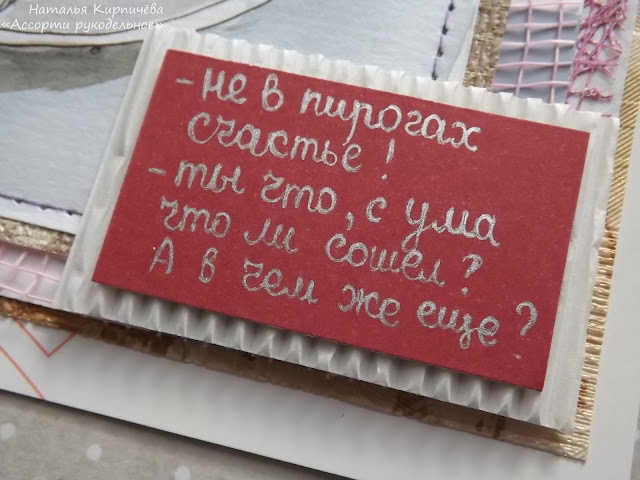 Наталья Кирпичёва
«Ассорти рукодельное»
- не в пирогах
счастье!
- ты что, с ума
что ли сошел?
А в чем же еще?